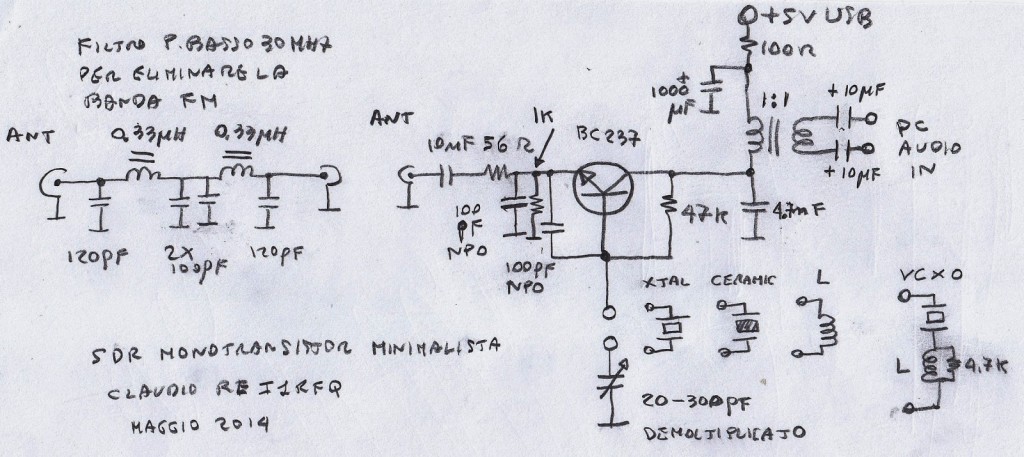 FILTRO P.BASSO 30MHZ
PER ELIMINARE LA
BANDA FM
ANT
0,33µH
0,33µH
120pF
2X
100pF
120pF
ANT
10mF
56Ω
1K
BC237
100
pF
NPO
100pF
NPO
47K
4,7mF
+5V USB
100Ω
1000
µF
+
1:1
+10µF
+10µF
PC
AUDIO
IN
XTAL
CERAMIC
L
VCXO
L
4.7K
20-300pF
DEMOLTIPLICATO
SDR MONOTRANSISTOR MINIMALISTA
CLAUDIO RE I1RFQ
MAGGIO 2014